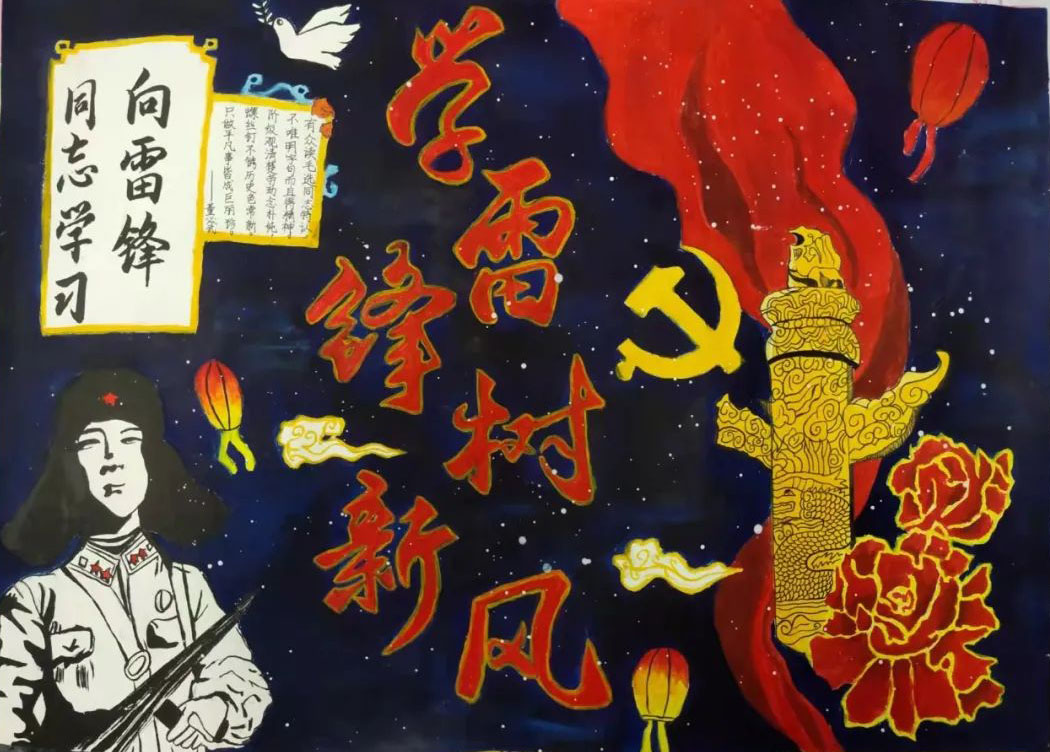 向雷锋
同志学习
有众读毛选同志特认
不唯明字句而且得精神。
阶级观清楚劳动念朴纯。
螺丝钉不锈历史色常新。
只做平凡事皆成巨丽珍。
——董必武
学雷锋树新风